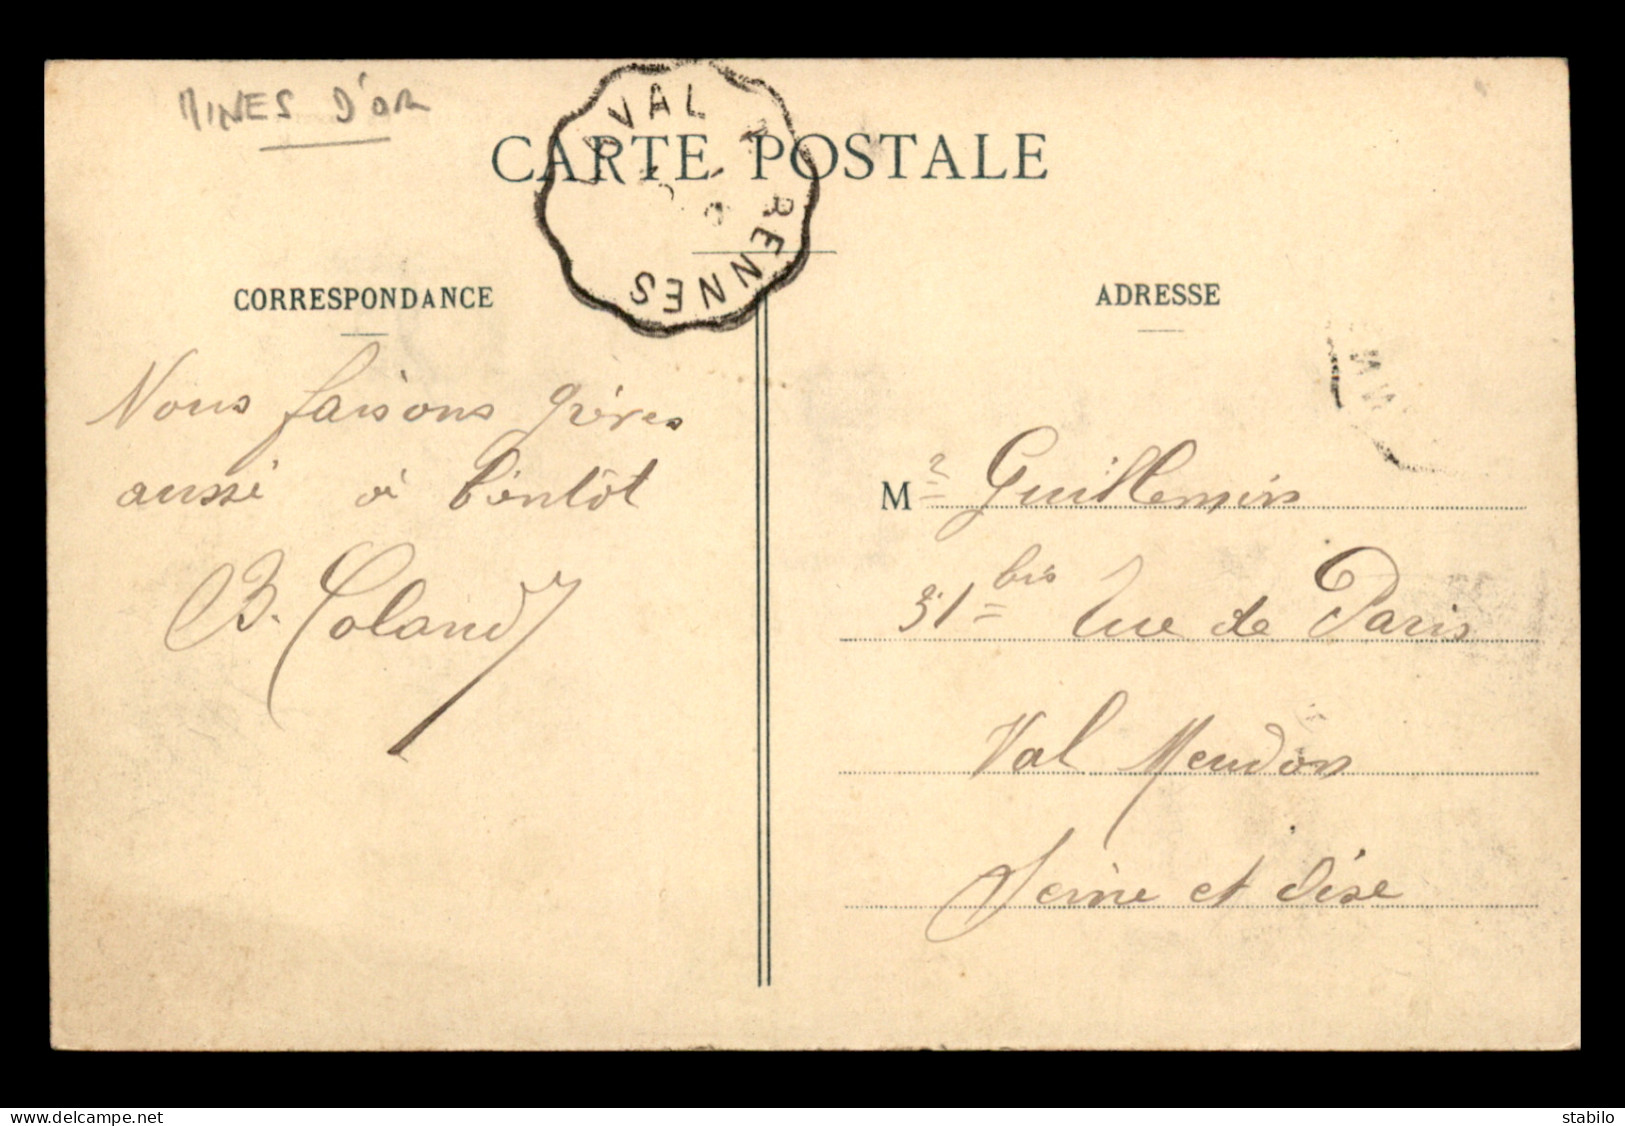 MINES D'OR
CARTE POSTALE
LAVAL A RENNES
CORRESPONDANCE
Nous faisons grèves
aussi à bientôt
B. Coland
ADRESSE
Mr Guillemin
31 bis rue de Paris
Val Meudon
Seine et Oise
delcampe.net
stabilo